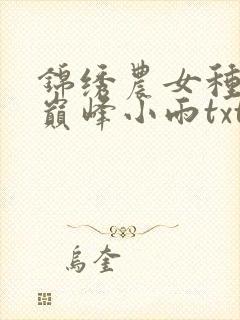 錦绣農女種
巔峰小雨txt
烏奎